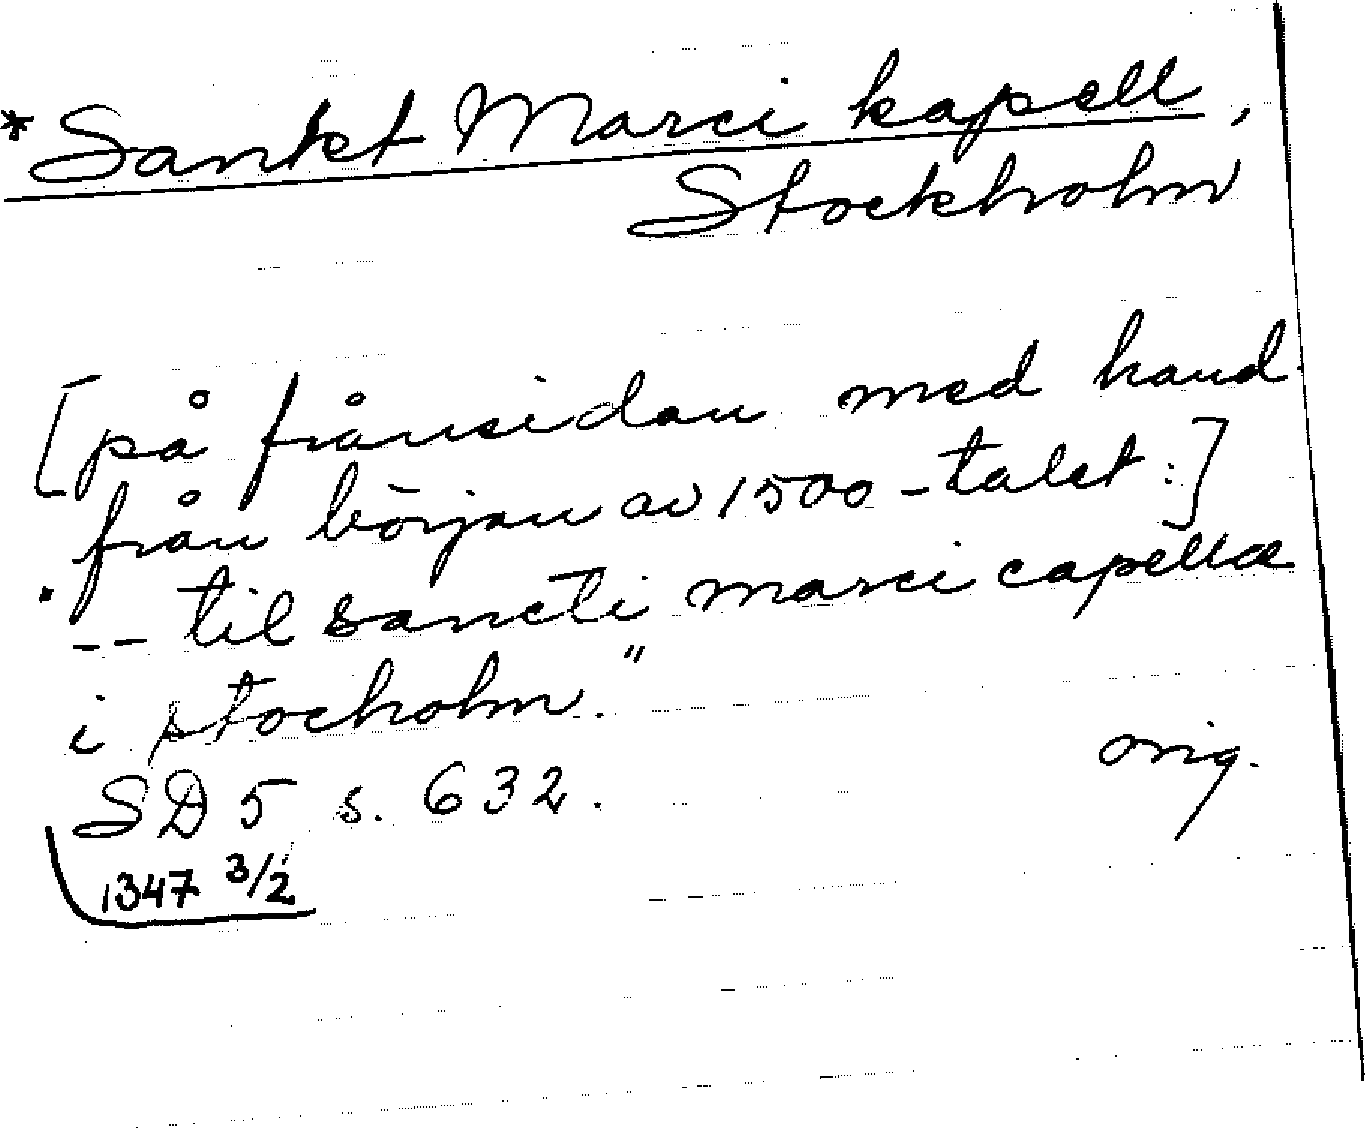 *Sankt Marci kapell,
Stockholm
[på frånsidan med hand
från början av 1500-talet:]
-- til sancti marci capellæ
i stocholm."
orig.
SD 5 s. 632.
1347 3/2